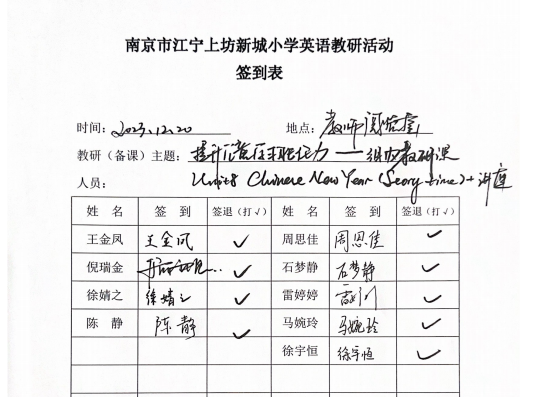 南京市江宁上坊新城小学英语教研活动
签到表
时间：2023.12.20 地点：教师阅览室
教研（备课）主题：提升 —— 组内教研课
人员： Unit8 Chinese New Year (Story time) + 讲座
姓 名 签 到 签退（打√） 姓 名 签 到 签退（打√）
王金凤 王金凤 ✓ 周思佳 周思佳 ✓
倪瑞金 ✓ 石梦静 石梦静 ✓
徐婧之 徐婧之 ✓ 雷婷婷 ✓
陈 静 陈静 ✓ 马婉玲 马婉玲 ✓
徐宇恒 徐宇恒 ✓